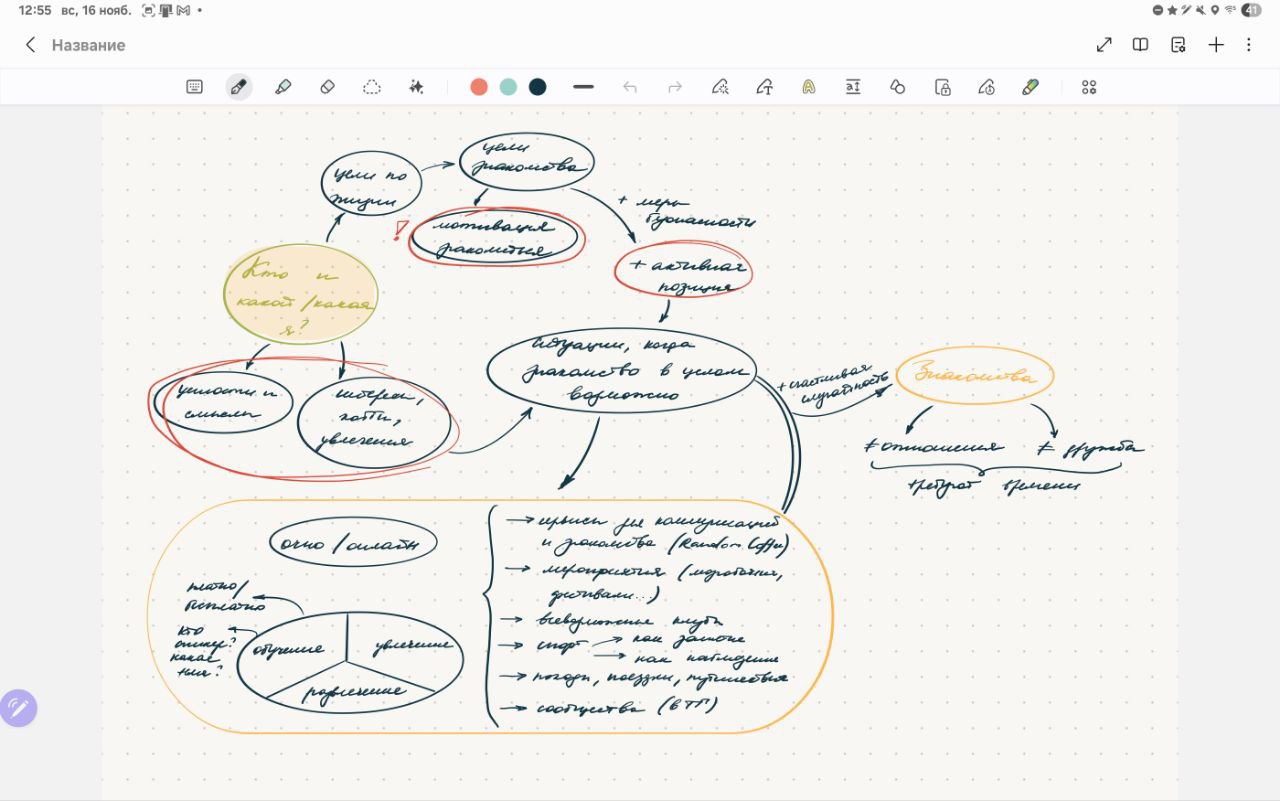 12:55 вс, 16 нояб.
41
Название
цели
знакомства
цели по
жизни
+ меры
безопасности
!
мотивация
знакомиться
+ активная
позиция
Кто и
какой / какая
я?
ситуации, когда
знакомство в целом
возможно
ценности и
смыслы
интересы,
хобби,
увлечения
+ счастливая
случайность
Знакомства
≠ отношения
≠ дружба
требуют времени
очно / онлайн
платно /
бесплатно
кто
спикер?
какая
тема?
обучение
увлечение
развлечение
→ сервисы для коммуникаций
и знакомства (Random Coffee)
→ мероприятия (
фестивали...)
→ всевозможные клубы
→ спорт → как занятие
→ как наблюдение
→ походы, поездки, путешествия
→ сообщества (в ТГ)